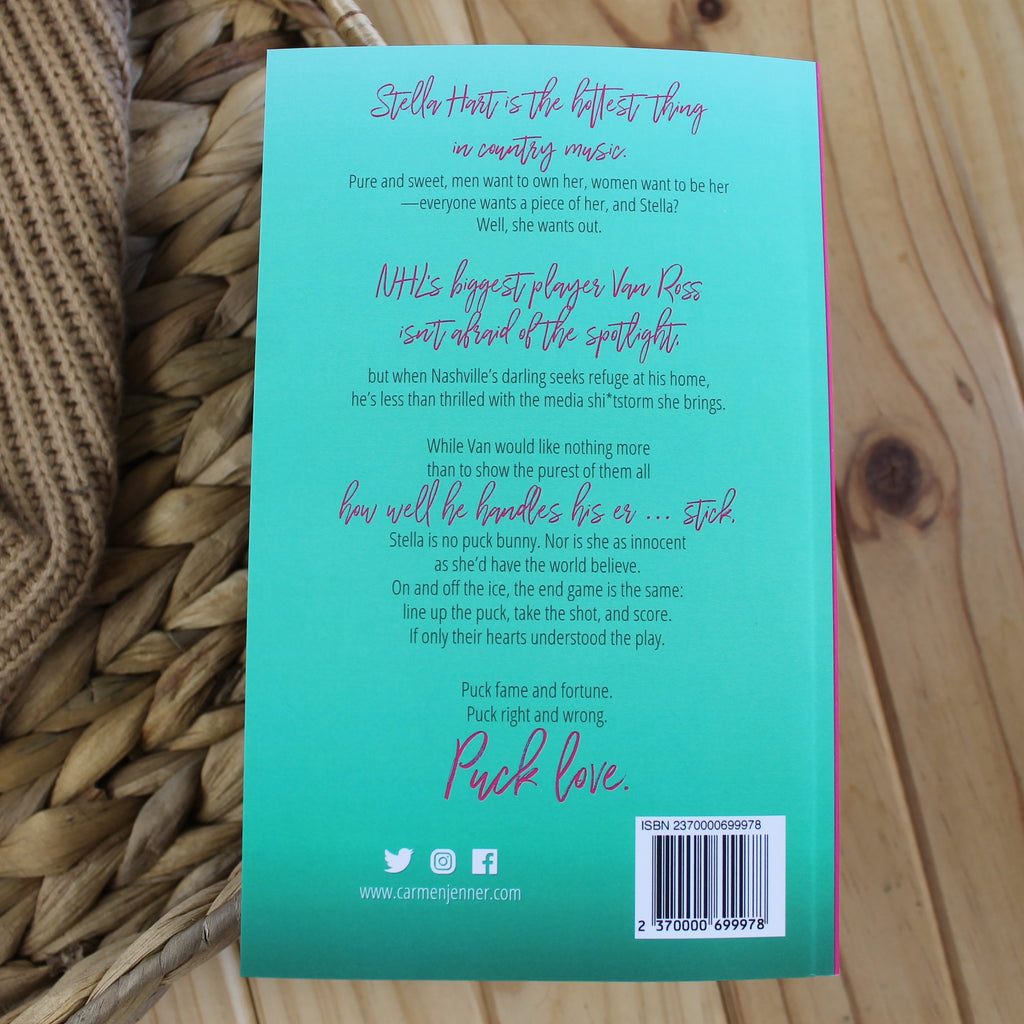 Stella Hart is the hottest thing
in country music.
Pure and sweet, men want to own her, women want to be her
—everyone wants a piece of her, and Stella?
Well, she wants out.
NHL's biggest player Van Ross
isn't afraid of the spotlight.
but when Nashville's darling seeks refuge at his home,
he's less than thrilled with the media shi*tstorm she brings.
While Van would like nothing more
than to show the purest of them all
how well he handles his er ... stick.
Stella is no puck bunny. Nor is she as innocent
as she'd have the world believe.
On and off the ice, the end game is the same:
line up the puck, take the shot, and score.
If only their hearts understood the play.
Puck fame and fortune.
Puck right and wrong.
Puck love.
ISBN 2370000699978
2 370000 699978
www.carmenjenner.com